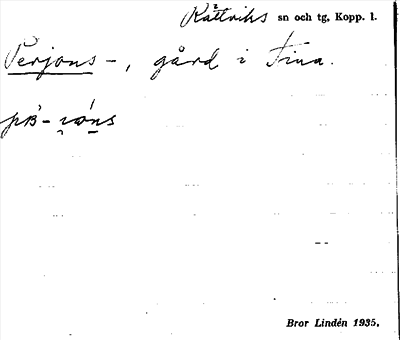 Rättviks sn och tg, Kopp. l.
Perjons-, gård i Fina.
Bror Lindén 1935.